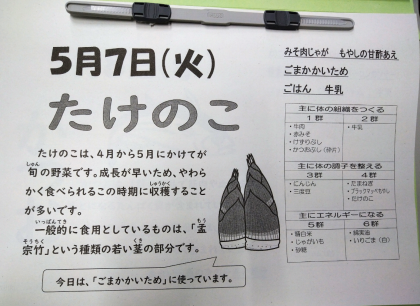 5月7日(火)
たけのこ
たけのこは、4月から5月にかけてが
しゅん
旬の野菜です。成長が早いため、やわら
しゅうかく
かく食べられるこの時期に収穫すること
が多いです。
いっぱんてき
もう
一般的に食用としているものは、「孟
そうちく
くき
宗竹」という種類の若い茎の部分です。
今日は、「ごまかかいため」に使っています。
みそ肉じゃが もやしの甘酢あえ
ごまかかいため
ごはん 牛乳
主に体の組織をつくる
1群 2群
・牛肉 ・牛乳
・赤みそ
・けずりぶし
・かつおぶし
主に体の調子を整える
3群 4群
・にんじん ・たまねぎ
・三度豆 ・ブラックマッペもやし
・たけのこ
主にエネルギーになる
5群 6群
・精白米 ・綿実油
・じゃがいも ・いりごま(白)
・砂糖